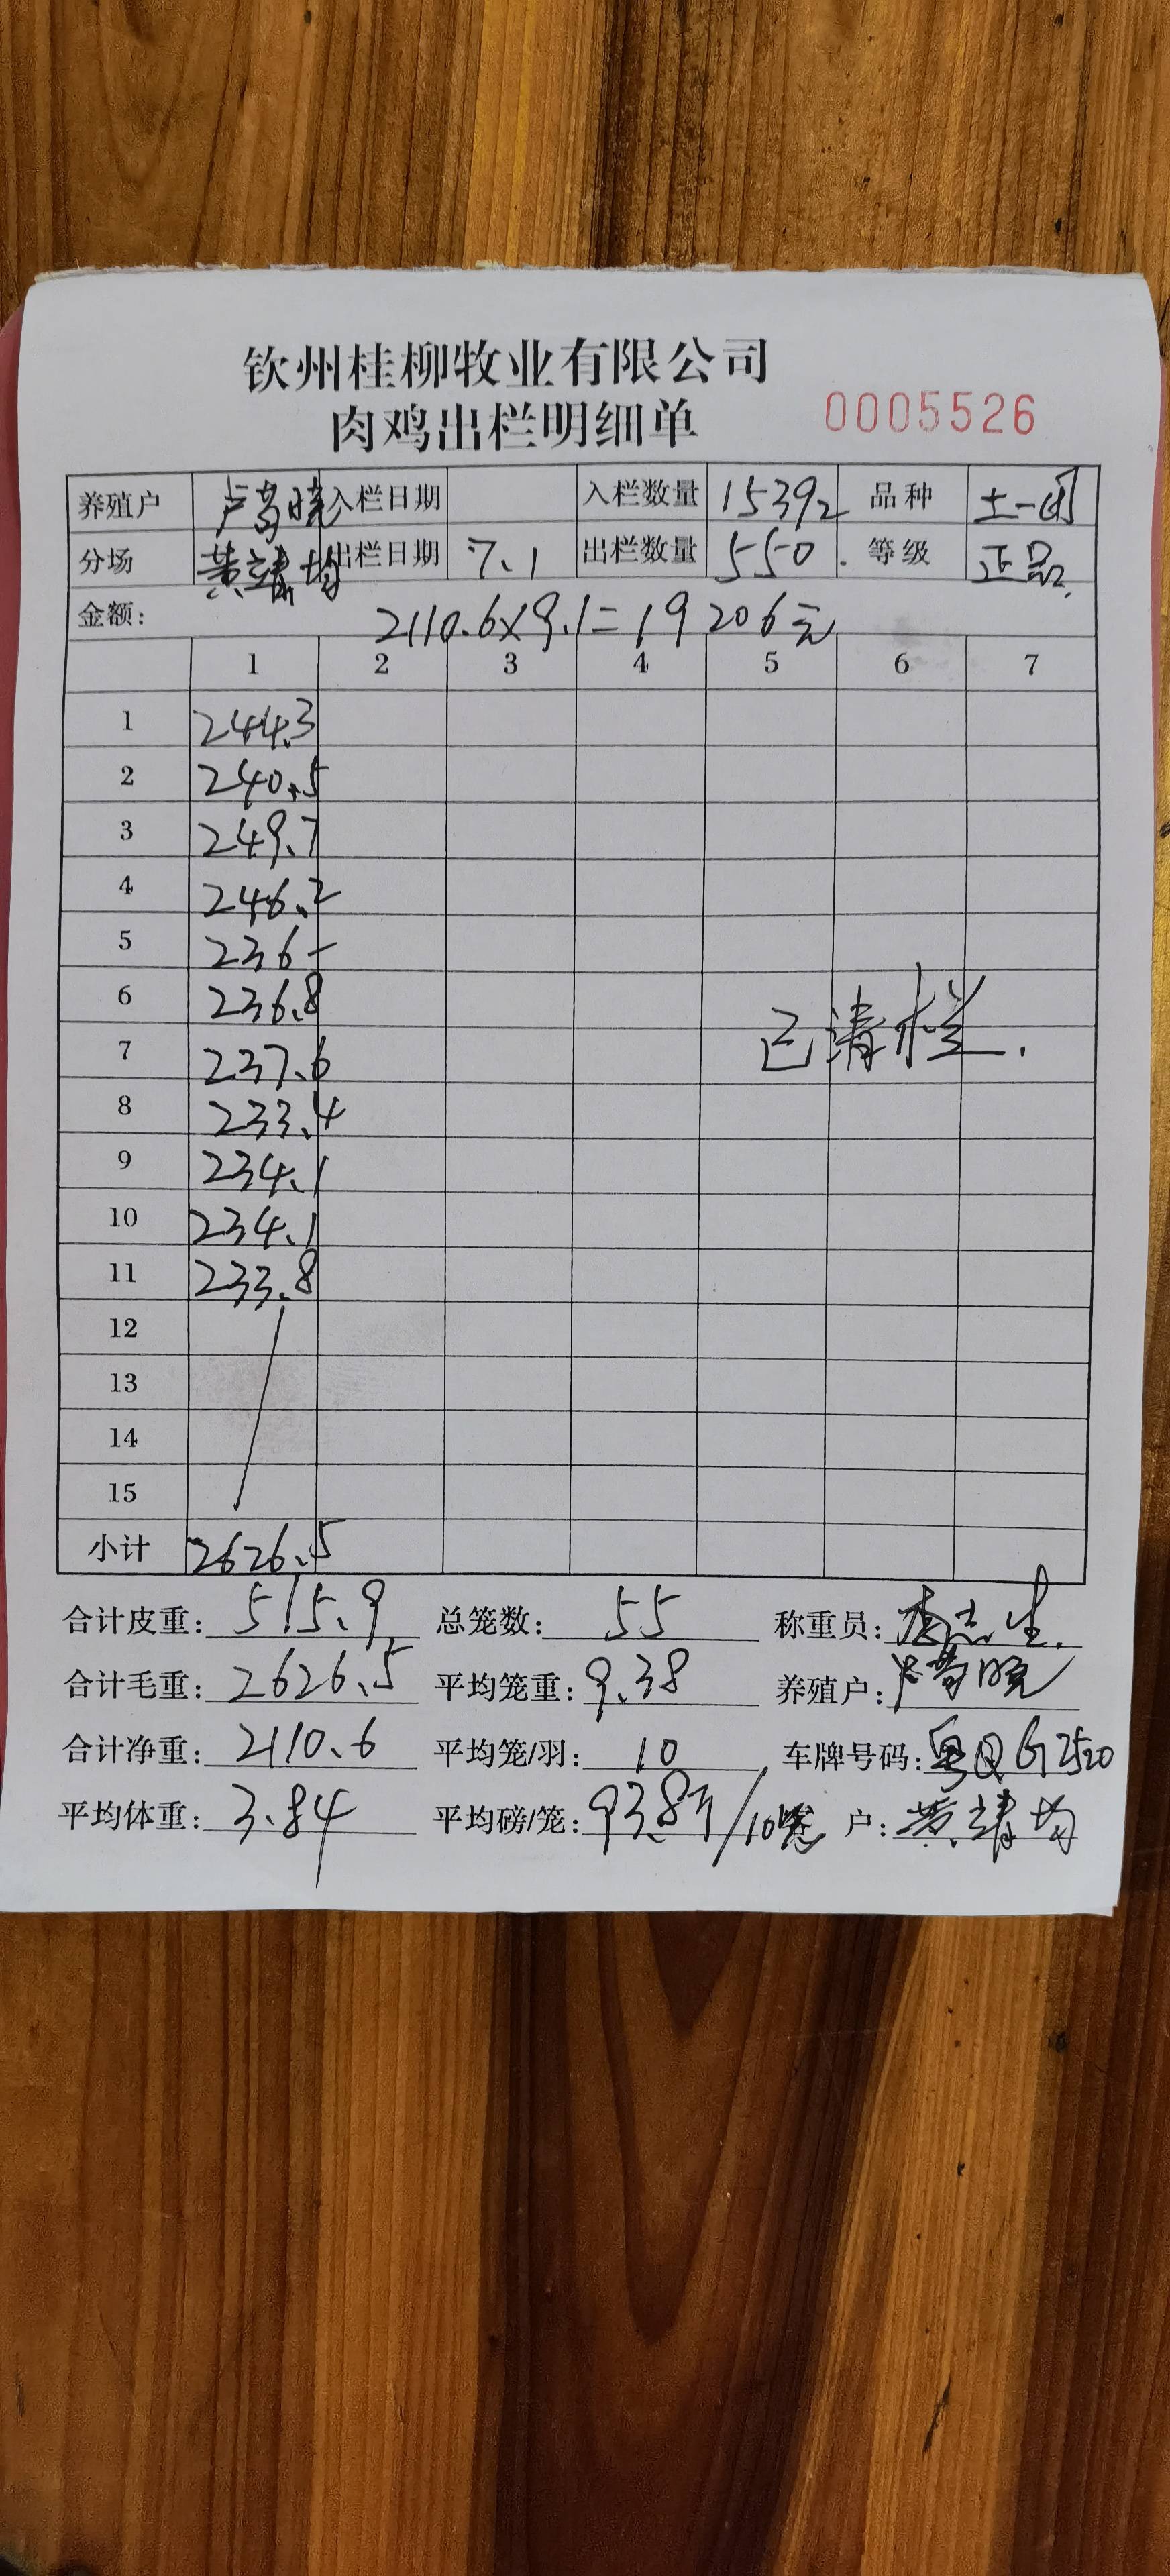 钦州桂柳牧业有限公司
肉鸡出栏明细单 0005526
养殖户 卢 晓 入栏日期 入栏数量 15392 品种 土一
分场 黄靖均 出栏日期 7.1 出栏数量 550. 等级 正品.
金额: 2110.6×9.1=19206元
1 2 3 4 5 6 7
1 244.3
2 240.5
3 249.7
4 246.2
5 236-
6 236.8
7 237.6 已清栏.
8 233.4
9 234.1
10 234.1
11 233.8
12
13
14
15
小计 2626.5
合计皮重: 515.9 总笼数: 55 称重员: 李志生.
合计毛重: 2626.5 平均笼重: 9.38 养殖户: 卢 晓
合计净重: 2110.6 平均笼/羽: 10 车牌号码: 粤QG2520
平均体重: 3.84 平均磅/笼: 93.8斤/10笼 户: 黄靖均